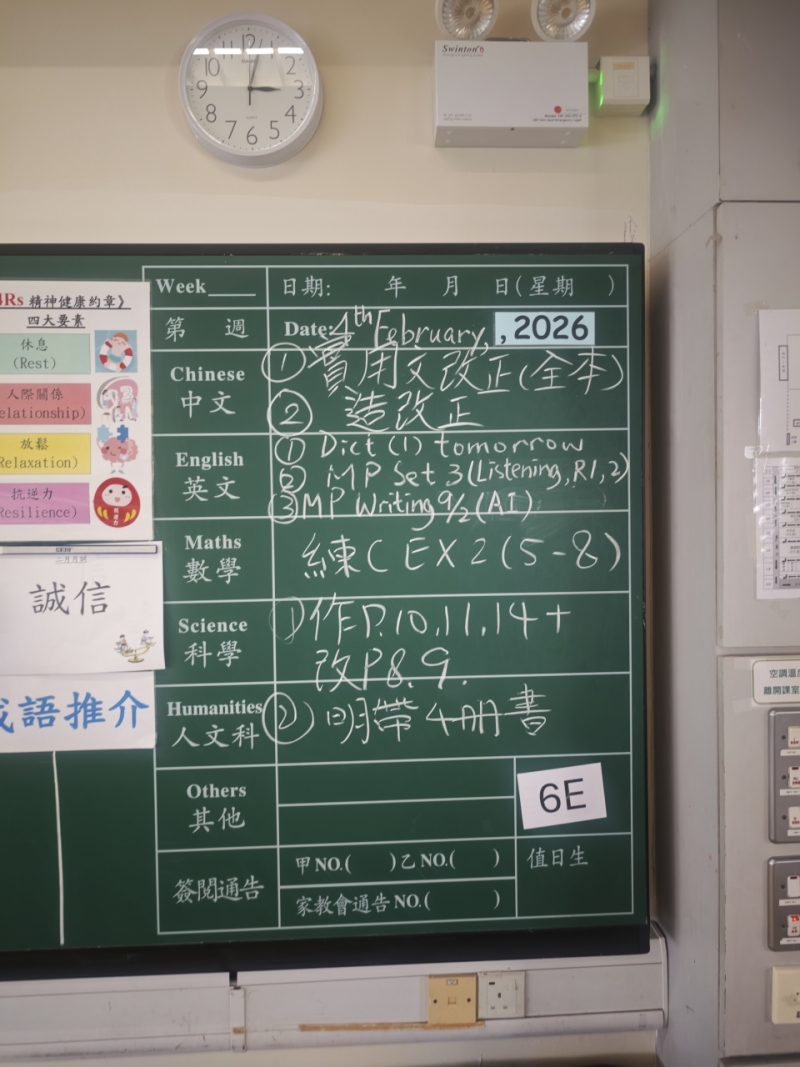 12
1
2
3
4
5
6
7
8
9
10
11
Swinton
4Rs 精神健康約章》
四大要素
休息
(Rest)
人際關係
Relationship)
放鬆
(Relaxation)
抗逆力
(Resilience)
誠信
成語推介
Week____ 日期: 年 月 日(星期 )
第 週 Date: 4th February, , 2026
Chinese
中文
① 實用文改正(全本)
② 造改正
English
英文
① Dict (1) tomorrow
② MP Set 3 (Listening, R1, 2)
③ MP Writing 9/2 (AI)
Maths
數學
練C EX 2 (5-8)
Science
科學
① 作P.10, 11, 14 +
改P8. 9.
Humanities
人文科
② 明帶4冊書
Others
其他
6E
簽閱通告
甲NO.( )乙NO.( )
家教會通告NO.( )
值日生
空調溫度
離開課室